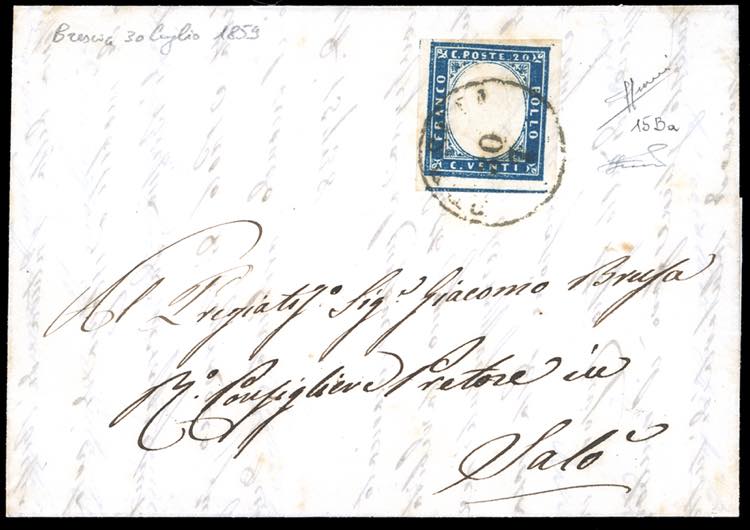 Brescia 30 luglio 1859
C. POSTE. 20
FRANCO
BOLLO
C. VENTI
30
15Ba
Al Pregiatis.o Sig.r Giacomo Brusa
R.o Consigliere Pretore in
Salò